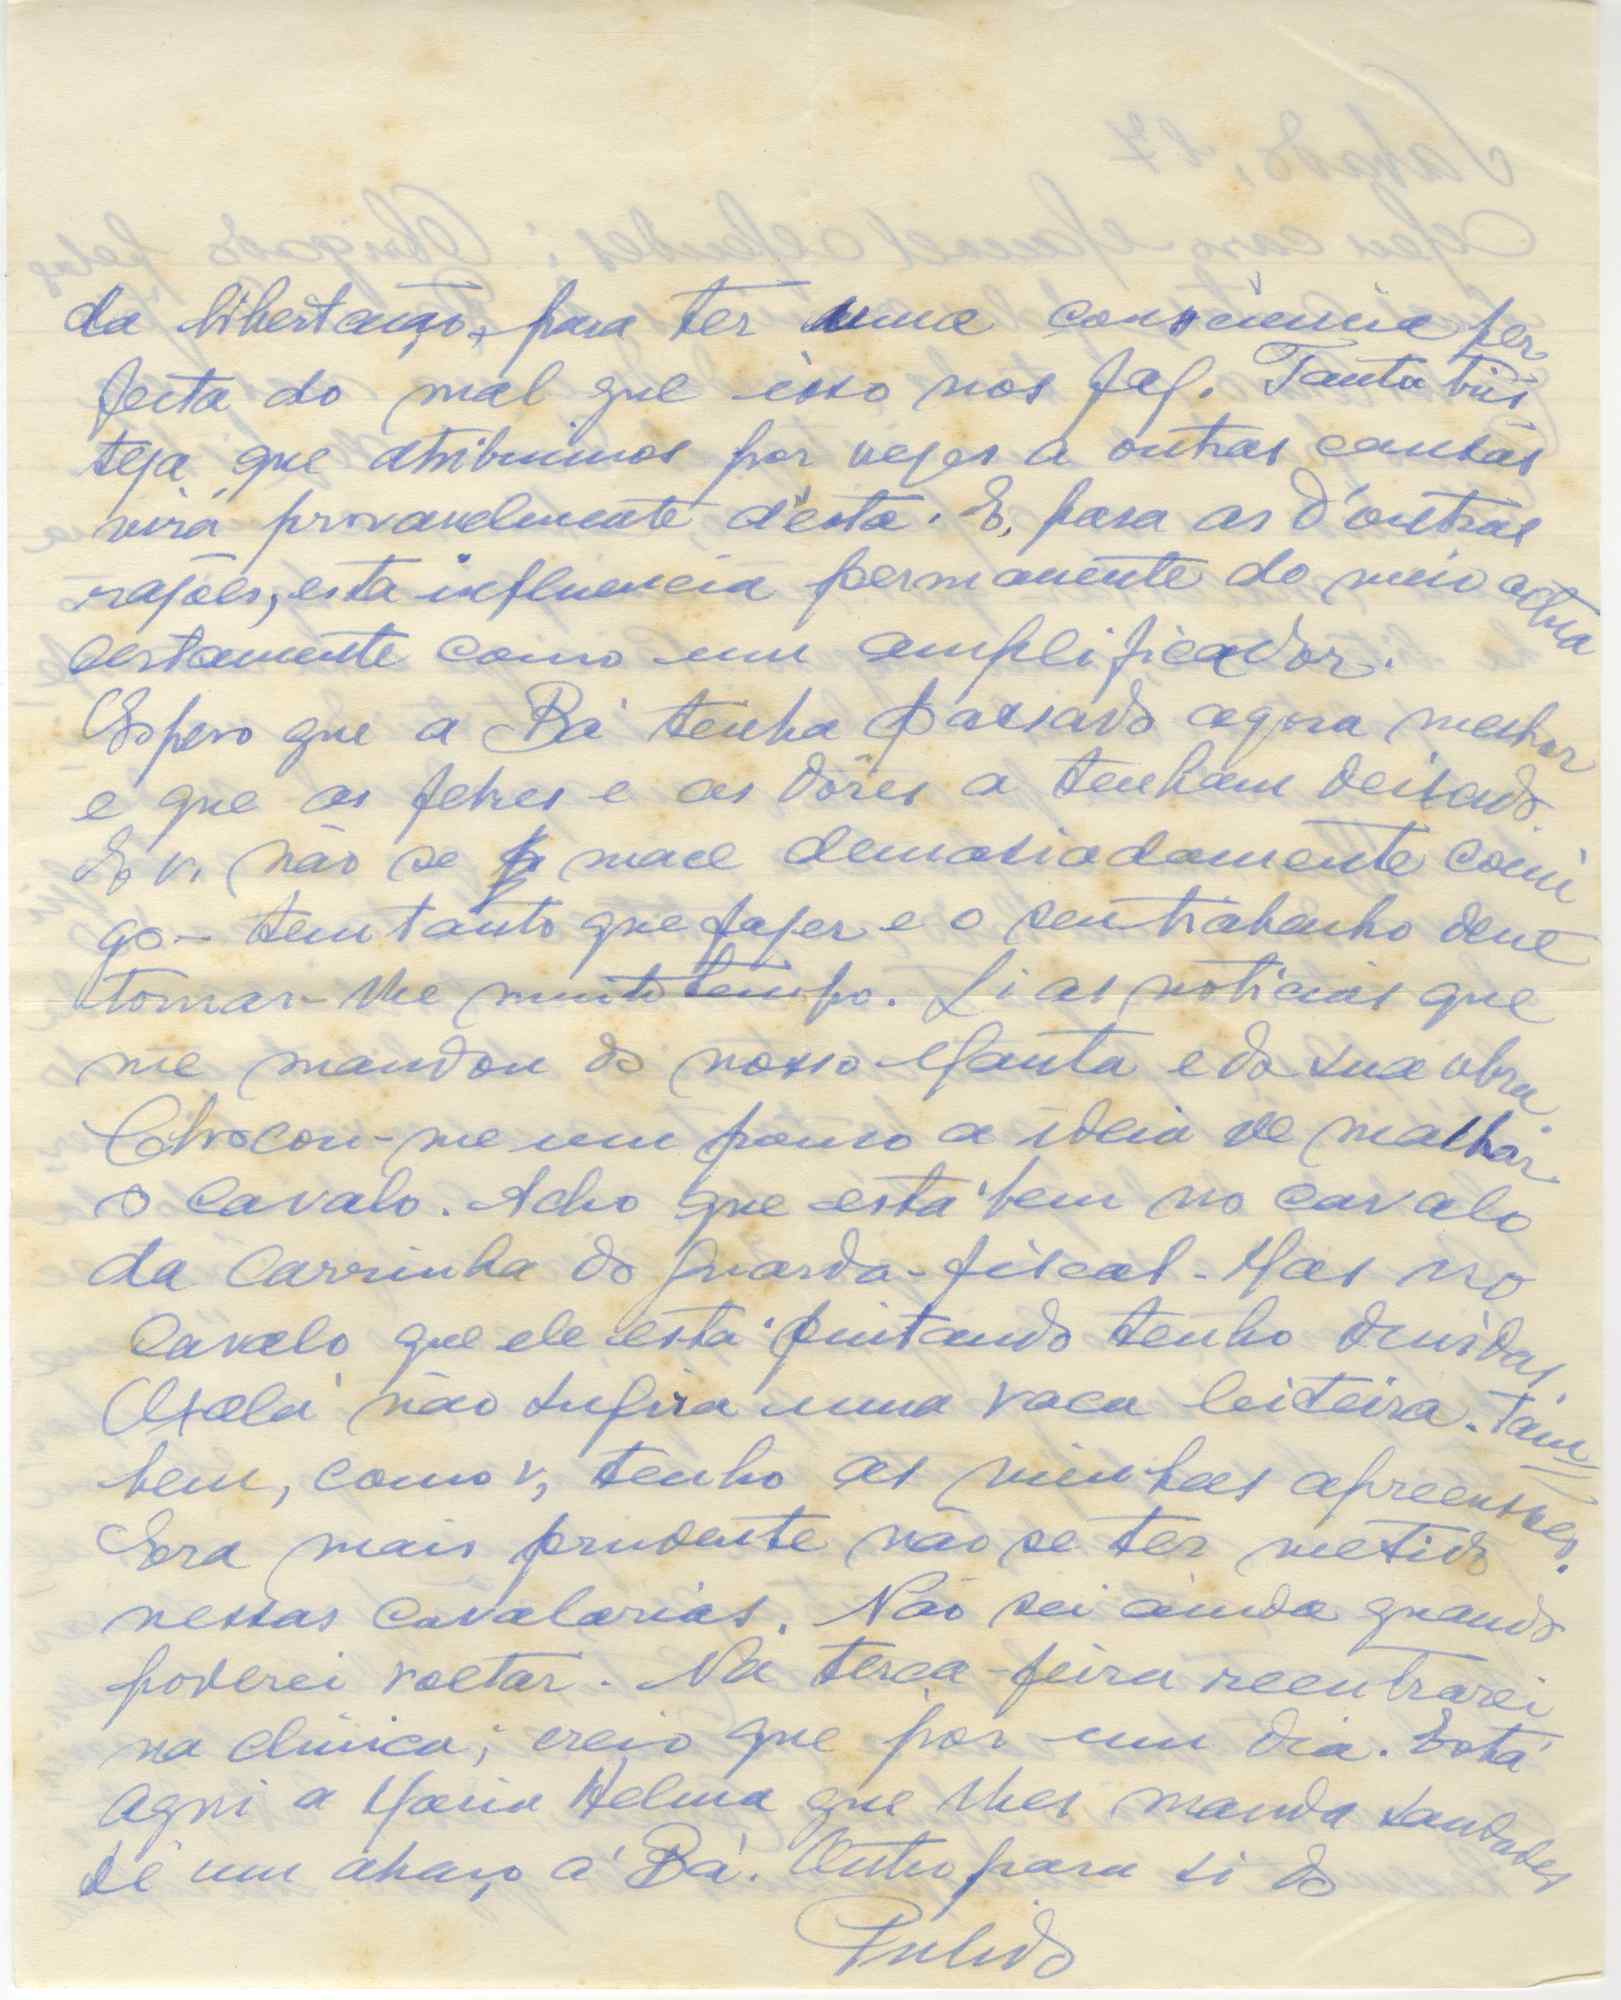 da libertação, para ter uma consciência per
feita do mal que isso nos faz. Tanta tris
teza que atribuimos por vezes a outras causas
virá provavelmente d'esta. E, para as d'outras
razões, esta influencia permanente do meio actua
certamente como um amplificador.
Espero que a Bá tenha passado agora melhor
e que as febres e as dôres a tenham deixado.
E v. não se mace demasiadamente comi
go – tem tanto que fazer e o seu trabalho deve
tomar-lhe muito tempo. Li as noticias que
me mandou do nosso Manta e da sua obra
Chocou-me um pouco a ideia de malhar
o cavalo. Acho que está bem no cavalo
da carrinha do guarda-fiscal. Mas no
cavalo que ele está pintando tenho duvidas.
Oxalá não sugira uma vaca leiteira. Tam
bem, como v, tenho as minhas apreensões.
Era mais prudente não se ter metido
nessas cavalarias. Não sei ainda quando
poderei voltar. Na terça-feira reentrarei
na clinica; creio que por um dia. Está
aqui a Maria Helena que lhes manda saudades
Dê um abraço á Bá. Outro para si do
Pulido